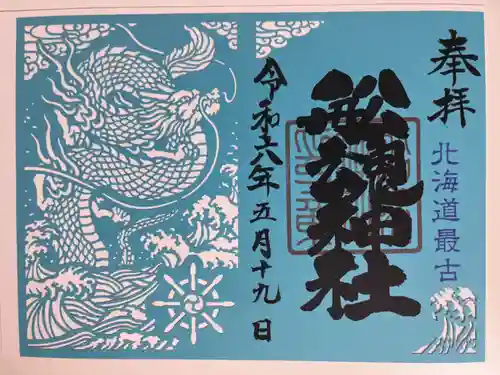 奉拝
北海道最古
船魂神社
令和六年五月十九日